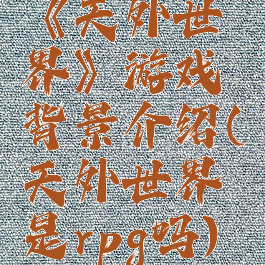 《天外世
界》游戏
背景介绍(
天外世界
是rpg吗)